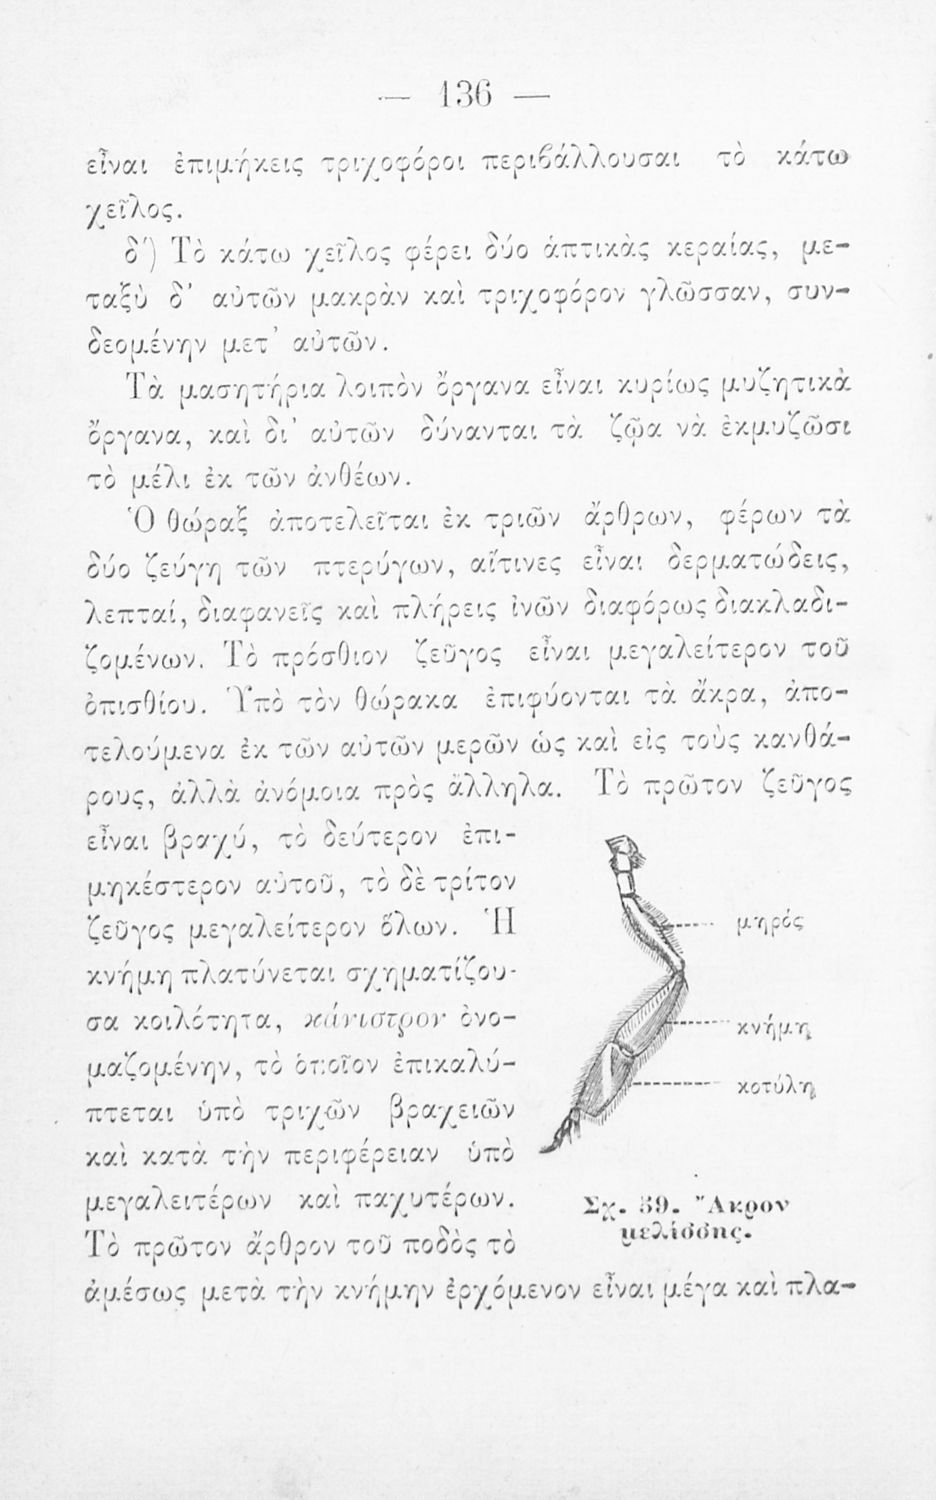 — 136 —
εἶναι ἐπιμήκεις τριχοφόροι περιβάλλουσαι τὸ κάτω
χεῖλος.
δ΄) Τὸ κάτω χεῖλος φέρει δύο ἁπτικὰς κεραίας, με-
ταξὺ δ’ αὐτῶν μακρὰν καὶ τριχοφόρον γλῶσσαν, συν-
δεομένην μετ’ αὐτῶν.
Τὰ μασητήρια λοιπὸν ὄργανα εἶναι κυρίως μυζητικὰ
ὄργανα, καὶ δι’ αὐτῶν δύνανται τὰ ζῷα νὰ ἐκμυζῶσι
τὸ μέλι ἐκ τῶν ἀνθέων.
Ὁ θώραξ ἀποτελεῖται ἐκ τριῶν ἄρθρων, φέρων τὰ
δύο ζεύγη τῶν πτερύγων, αἵτινες εἶναι δερματώδεις,
λεπταί, διαφανεῖς καὶ πλήρεις ἰνῶν διαφόρως διακλαδι-
ζομένων. Τὸ πρόσθιον ζεῦγος εἶναι μεγαλείτερον τοῦ
ὀπισθίου. Ὑπὸ τὸν θώρακα ἐπιφύονται τὰ ἄκρα, ἀπο-
τελούμενα ἐκ τῶν αὐτῶν μερῶν ὡς καὶ εἰς τοὺς κανθά-
ρους, ἀλλὰ ἀνόμοια πρὸς ἄλληλα. Τὸ πρῶτον ζεῦγος
εἶναι βραχύ, τὸ δεύτερον ἐπι-
μηκέστερον αὐτοῦ, τὸ δὲ τρίτον
ζεῦγος μεγαλείτερον ὅλων. Ἡ
κνήμη πλατύνεται σχηματίζου-
σα κοιλότητα, κάνιστρον ὀνο-
μαζομένην, τὸ ὁποῖον ἐπικαλύ-
πτεται ὑπὸ τριχῶν βραχειῶν
καὶ κατὰ τὴν περιφέρειαν ὑπὸ
μεγαλειτέρων καὶ παχυτέρων.
Τὸ πρῶτον ἄρθρον τοῦ ποδὸς τὸ
ἀμέσως μετὰ τὴν κνήμην ἐρχόμενον εἶναι μέγα καὶ πλα-
μηρός
κνήμη
κοτύλη
Σχ. 59. Ἄκρον
μελίσσης.